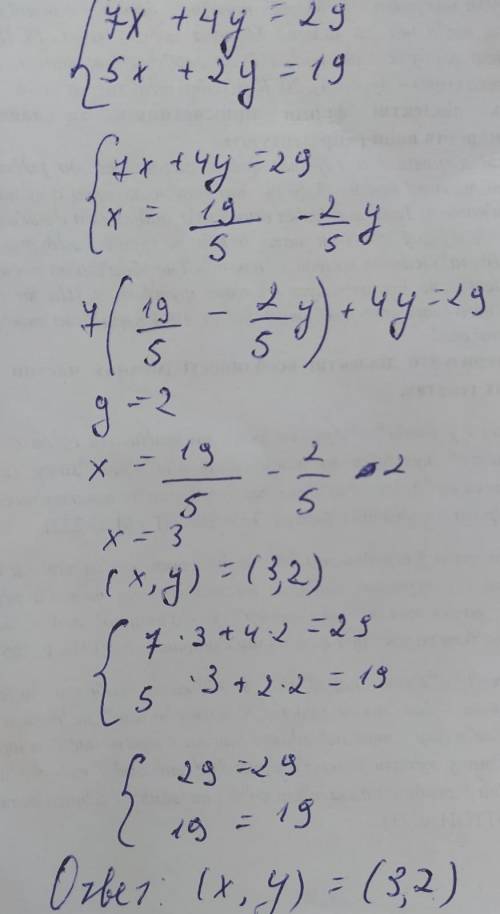 {7x + 4y = 29
{5x + 2y = 19
{7x + 4y = 29
{x = 19/5 - 2/5 y
7(19/5 - 2/5 y) + 4y = 29
y = 2
x = 19/5 - 2/5 · 2
x = 3
(x, y) = (3, 2)
{7 · 3 + 4 · 2 = 29
{5 · 3 + 2 · 2 = 19
{29 = 29
{19 = 19
Ответ: (x, y) = (3, 2)